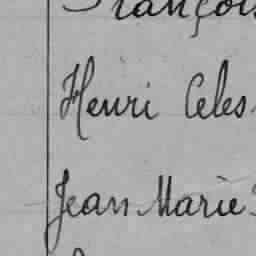 François
Henri Celes
Jean Marie